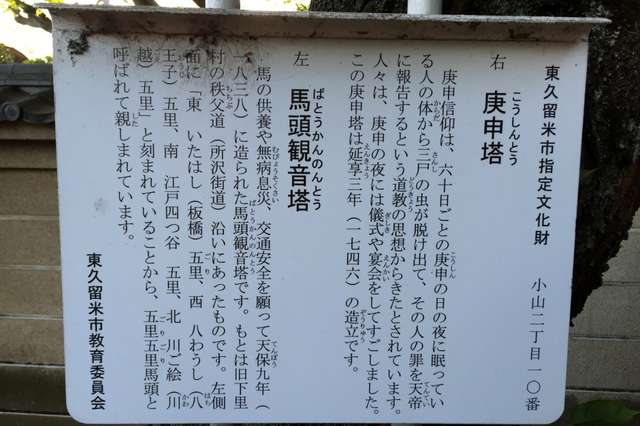 東久留米市指定文化財　小山二丁目一〇番
右　庚申塔
こうしんとう
庚申信仰は、六十日ごとの庚申の日の夜に眠ってい
る人の体から三戸の虫が脱け出て、その人の罪を天帝
に報告するという道教の思想からきたとされています。
人々は、庚申の夜には儀式や宴会をしてすごしました。
この庚申塔は延享三年（一七四六）の造立です。
左　馬頭観音塔
ばとうかんのんとう
馬の供養や無病息災、交通安全を願って天保九年（
一八三八）に造られた馬頭観音塔です。もとは旧下里
村の秩父道（所沢街道）沿いにあったものです。左側
面に「東　いたはし（板橋）五里、西　八わうし（八
王子）五里、南　江戸四つ谷　五里、北　川ご絵（川
越）五里」と刻まれていることから、五里五里馬頭と
呼ばれて親しまれています。
東久留米市教育委員会